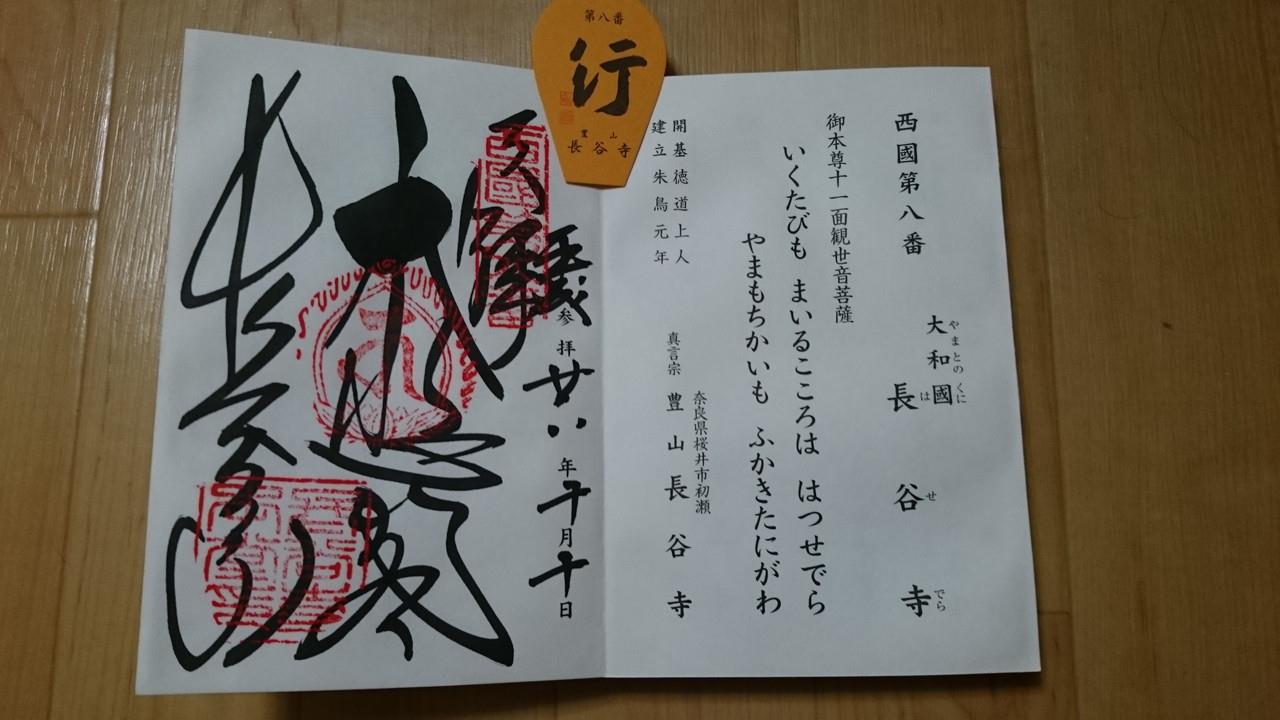 第八番
行
豊山
長谷寺
西國第八番
大和國
やまとのくに
長谷寺
はせでら
御本尊十一面観世音菩薩
いくたびも まいるこころは はつせでら
やまもちかいも ふかきたにがわ
開基徳道上人
建立朱鳥元年
奈良県桜井市初瀬
真言宗 豊山長谷寺
奉拝
参拝 廿八年十月十日
大悲閣
長谷寺